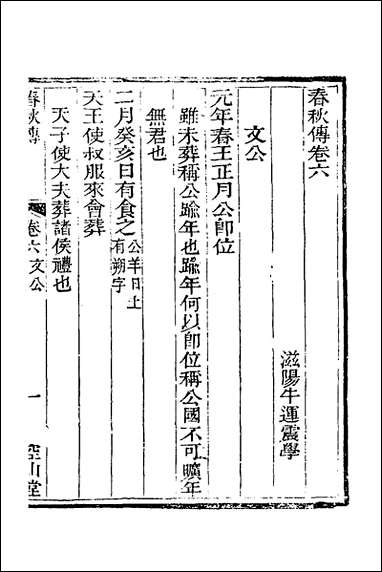 春秋傳卷六
滋陽牛運震學
文公
元年春王正月公卽位
雖未葬稱公踰年也踰年何以卽位稱公國不可曠年
無君也
二月癸亥日有食之公羊日上有朔字
天王使叔服來會葬
天子使大夫葬諸侯禮也
春秋傳 卷六文公 一 空山堂